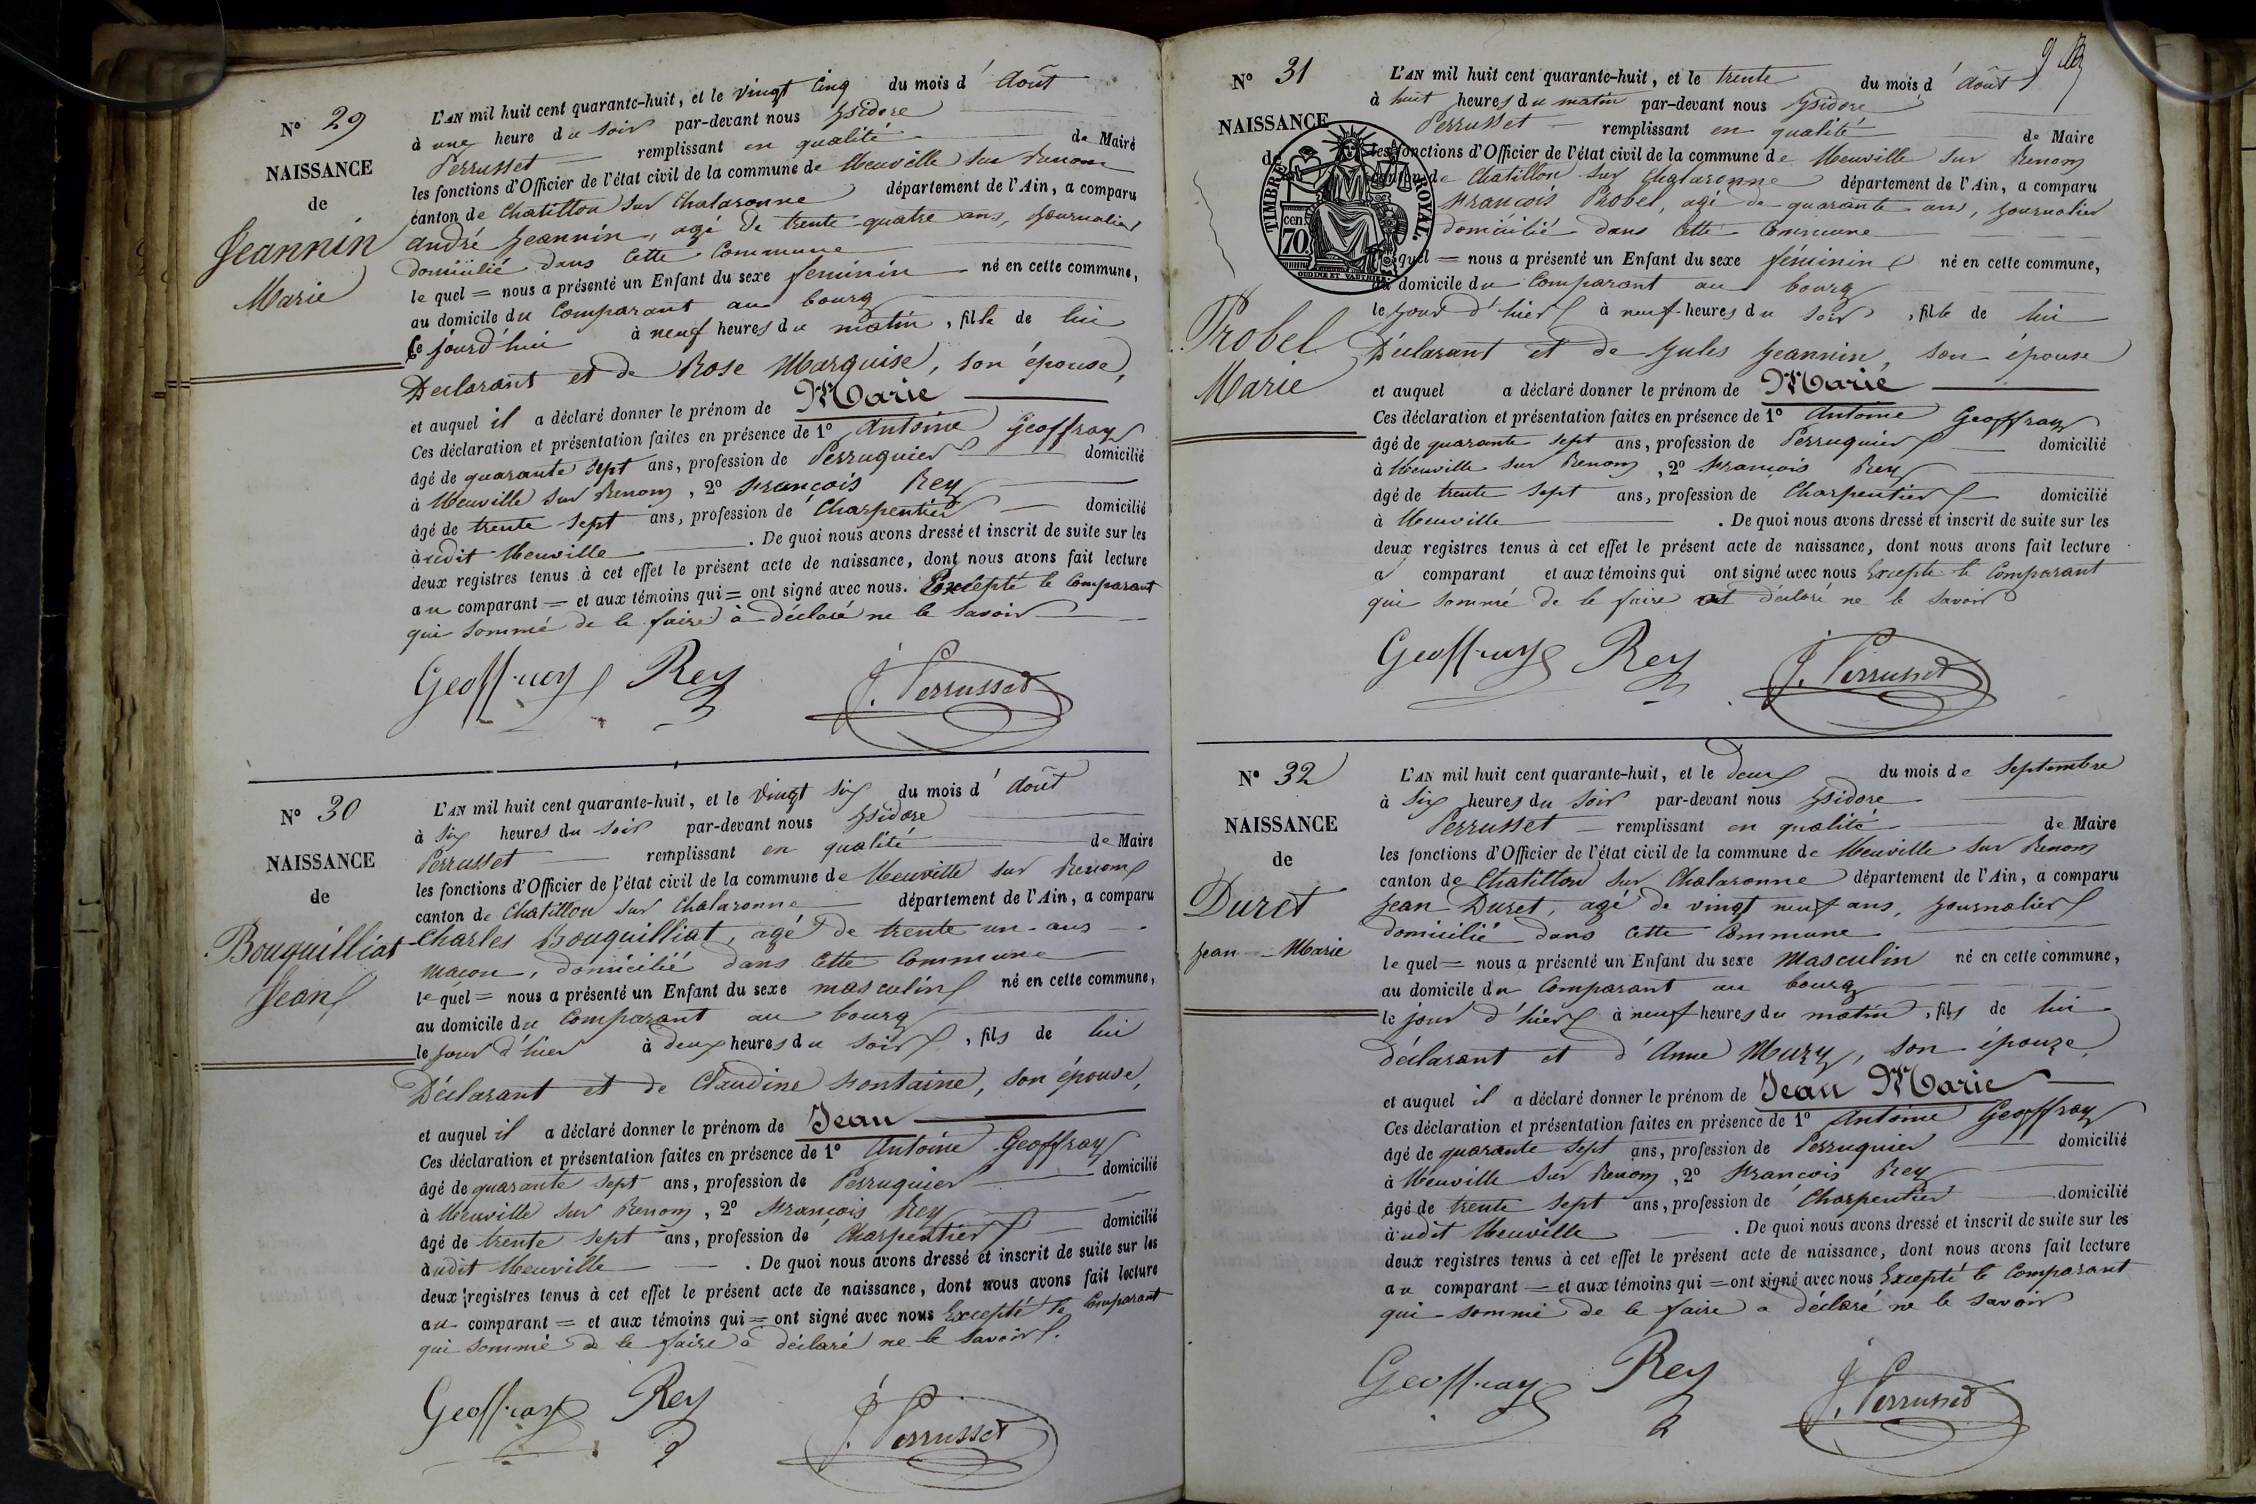 N° 29
NAISSANCE
de
Jeannin
Marie
L'AN mil huit cent quarante-huit, et le vingt cinq du mois d'août
à une heure du soir par-devant nous Ysidore
Perrusset — remplissant en qualité de Maire
les fonctions d'Officier de l'état civil de la commune de Neuville sur Renom
canton de Chatillon sur Chalaronne département de l'Ain, a comparu
andré Jeannin, agé de trente quatre ans, journalier
domicilié dans cette Commune
le quel = nous a présenté un Enfant du sexe féminin né en cette commune,
au domicile du Comparant au bourg
ce jourd'hui à neuf heures du matin, fille de lui
Déclarant et de Rose Marquise, son épouse,
et auquel il a déclaré donner le prénom de Marie
Ces déclaration et présentation faites en présence de 1° Antoine Geoffray
âgé de quarante sept ans, profession de Perruquier domicilié
à Neuville sur Renom, 2° François Rey
âgé de trente sept ans, profession de Charpentier domicilié
àudit Neuville . De quoi nous avons dressé et inscrit de suite sur les
deux registres tenus à cet effet le présent acte de naissance, dont nous avons fait lecture
au comparant = et aux témoins qui = ont signé avec nous. Excepté le Comparant
qui sommé de le faire à déclaré ne le savoir
Geoffray Rey J. Perrusset
N° 30
NAISSANCE
de
Bouquilliat
Jean
L'AN mil huit cent quarante-huit, et le vingt six du mois d'août
à six heures du soir par-devant nous Ysidore
Perrusset — remplissant en qualité de Maire
les fonctions d'Officier de l'état civil de la commune de Neuville sur Renom
canton de Chatillon sur Chalaronne département de l'Ain, a comparu
Charles Bouquilliat, agé de trente un ans
maçon, domicilié dans cette Commune
le quel = nous a présenté un Enfant du sexe masculin né en cette commune,
au domicile du Comparant au bourg
le jour d'hier à deux heures du soir, fils de lui
Déclarant et de Claudine Fontaine, son épouse,
et auquel il a déclaré donner le prénom de Jean
Ces déclaration et présentation faites en présence de 1° Antoine Geoffray
âgé de quarante sept ans, profession de Perruquier domicilié
à Neuville sur Renom, 2° François Rey
âgé de trente sept ans, profession de Charpentier domicilié
àudit Neuville — . De quoi nous avons dressé et inscrit de suite sur les
deux registres tenus à cet effet le présent acte de naissance, dont nous avons fait lecture
au comparant = et aux témoins qui = ont signé avec nous Excepté le Comparant
qui sommé de le faire à déclaré ne le savoir.
Geoffray Rey J. Perrusset
9
N° 31
NAISSANCE
de
Probel
Marie
TIMBRE ROYAL.
cen. 70
OUDINE ET VAUTHIER
L'AN mil huit cent quarante-huit, et le trente du mois d'août
à huit heures du matin par-devant nous Ysidore
Perrusset — remplissant en qualité de Maire
les fonctions d'Officier de l'état civil de la commune de Neuville sur Renom
canton de Chatillon sur Chalaronne département de l'Ain, a comparu
François Probel, agé de quarante ans, journalier
domicilié dans cette Commune
le quel = nous a présenté un Enfant du sexe féminin né en cette commune,
au domicile du Comparant au bourg
le jour d'hier à neuf heures du soir, fille de lui
Déclarant et de Jules Jeannin, son épouse
et auquel a déclaré donner le prénom de Marie
Ces déclaration et présentation faites en présence de 1° Antoine Geoffray
âgé de quarante sept ans, profession de Perruquier domicilié
à Neuville sur Renom, 2° François Rey
âgé de trente sept ans, profession de Charpentier domicilié
à Neuville . De quoi nous avons dressé et inscrit de suite sur les
deux registres tenus à cet effet le présent acte de naissance, dont nous avons fait lecture
a comparant et aux témoins qui ont signé avec nous Excepté le Comparant
qui sommé de le faire déclaré ne le savoir
Geoffray Rey J. Perrusset
N° 32
NAISSANCE
de
Duret
Jean-Marie
L'AN mil huit cent quarante-huit, et le deux du mois de Septembre
à six heures du soir par-devant nous Ysidore
Perrusset — remplissant en qualité de Maire
les fonctions d'Officier de l'état civil de la commune de Neuville sur Renom
canton de Chatillon sur Chalaronne département de l'Ain, a comparu
Jean Duret, agé de vingt neuf ans, journalier
domicilié dans cette Commune
le quel = nous a présenté un Enfant du sexe Masculin né en cette commune,
au domicile du Comparant au bourg
le jour d'hier à neuf heures du matin, fils de lui
déclarant et d'Anne Muzy, son épouze,
et auquel il a déclaré donner le prénom de Jean Marie
Ces déclaration et présentation faites en présence de 1° Antoine Geoffray
âgé de quarante sept ans, profession de Perruquier domicilié
à Neuville sur Renom, 2° François Rey
âgé de trente sept ans, profession de Charpentier domicilié
àudit Neuville . De quoi nous avons dressé et inscrit de suite sur les
deux registres tenus à cet effet le présent acte de naissance, dont nous avons fait lecture
au comparant = et aux témoins qui = ont signé avec nous Excepté le Comparant
qui sommé de le faire a déclaré ne le savoir
Geoffray Rey J. Perrusset